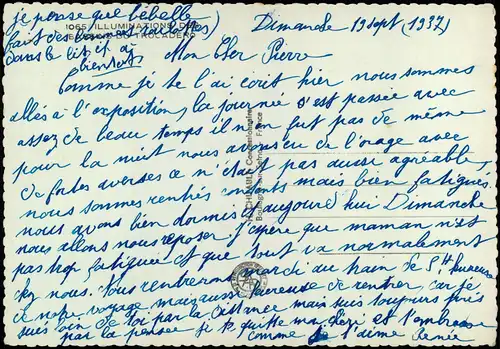 je pense que bébelle
fait des
dans le lit, il a
bientôt
1065 ILLUMINATIONS
TROCADERO
Dimanche 19 Sept (1937)
Mon Cher Pierre
Comme je te l'ai écrit hier nous sommes
allés à l'exposition, la journée s'est passée avec
assez de beau temps il n'en fut pas de même
pour la nuit nous avons eu de l'orage avec
de fortes averses ce n'était pas aussi agréable,
nous sommes rentrés contents mais bien fatigués
nous avons bien dormi et aujourd'hui Dimanche
nous allons nous reposer j'espère que maman n'est
pas trop fatiguée et que tout va normalement
chez nous. Nous rentrerons mardi au train de 5h heureuse
de notre voyage mais aussi heureuse de rentrer, car je
suis loin de toi par la distance mais suis toujours près
par la pensée je te quitte mon et t'embrasse
comme je t'aime Renée
France